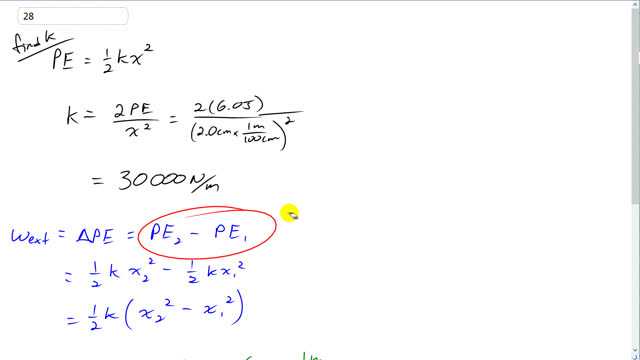 28
find k
PE = 1/2 kx²
k = 2PE/x² = 2(6.0J)/(2.0cm × 1m/100cm)²
= 30000 N/m
Wext = ΔPE = PE₂ − PE₁
= 1/2 k x₂² − 1/2 k x₁²
= 1/2 k (x₂² − x₁²)